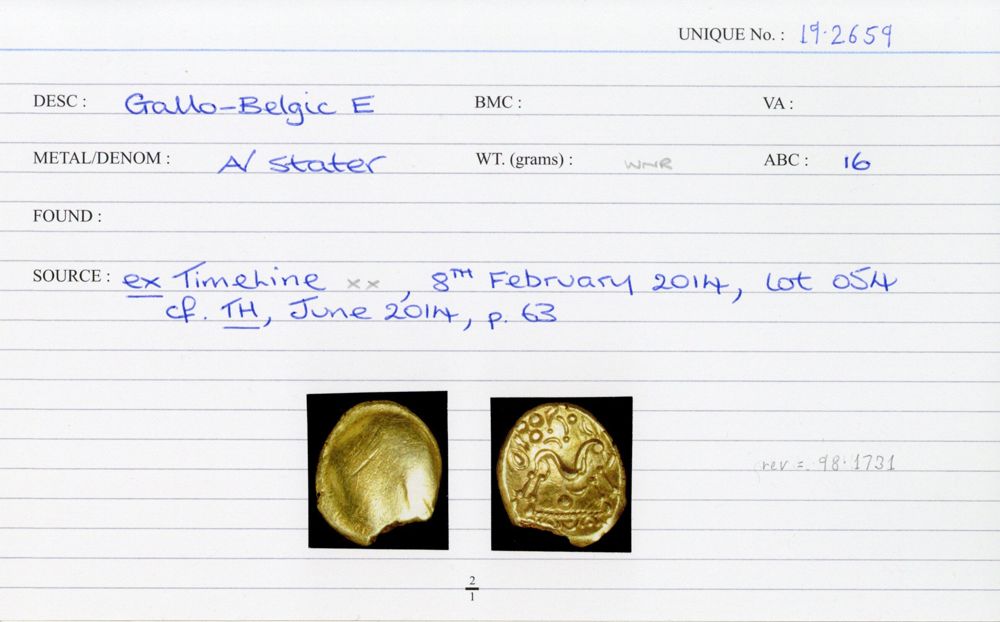 UNIQUE No. : 19.2659
DESC : Gallo-Belgic E BMC : VA :
METAL/DENOM : A/ stater WT. (grams) : WNR ABC : 16
FOUND :
SOURCE : ex Timeline xx, 8TH February 2014, Lot 054
cf. TH, June 2014, p. 63
rev = 98.1731
2
1